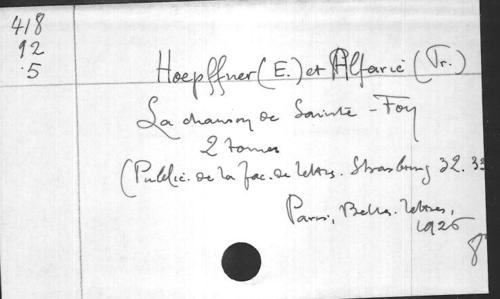 418
92
.5
Hoepffner (E.) et Alfaric (Pr.)
La chanson de Sainte-Foy
2 tomes
(Public. de la Fac. de lettres. Strasbourg 32.33
Paris, Belles-lettres,
1926
8°